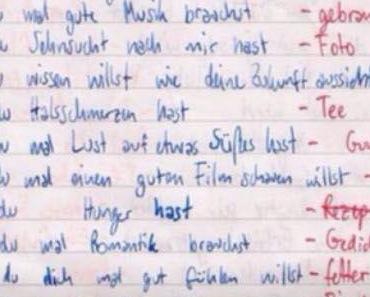 mal gute Musik brauchst - gebran
Sehnsucht nach mir hast - Foto
wissen willst wie deine Zukunft aussieht
Halsschmerzen hast - Tee
mal Lust auf etwas Süßes hast - Gu
mal einen guten Film schauen willst -
du Hunger hast - Rezep
du mal Romantik brauchst - Gedic
du dich mal gut fühlen willst -